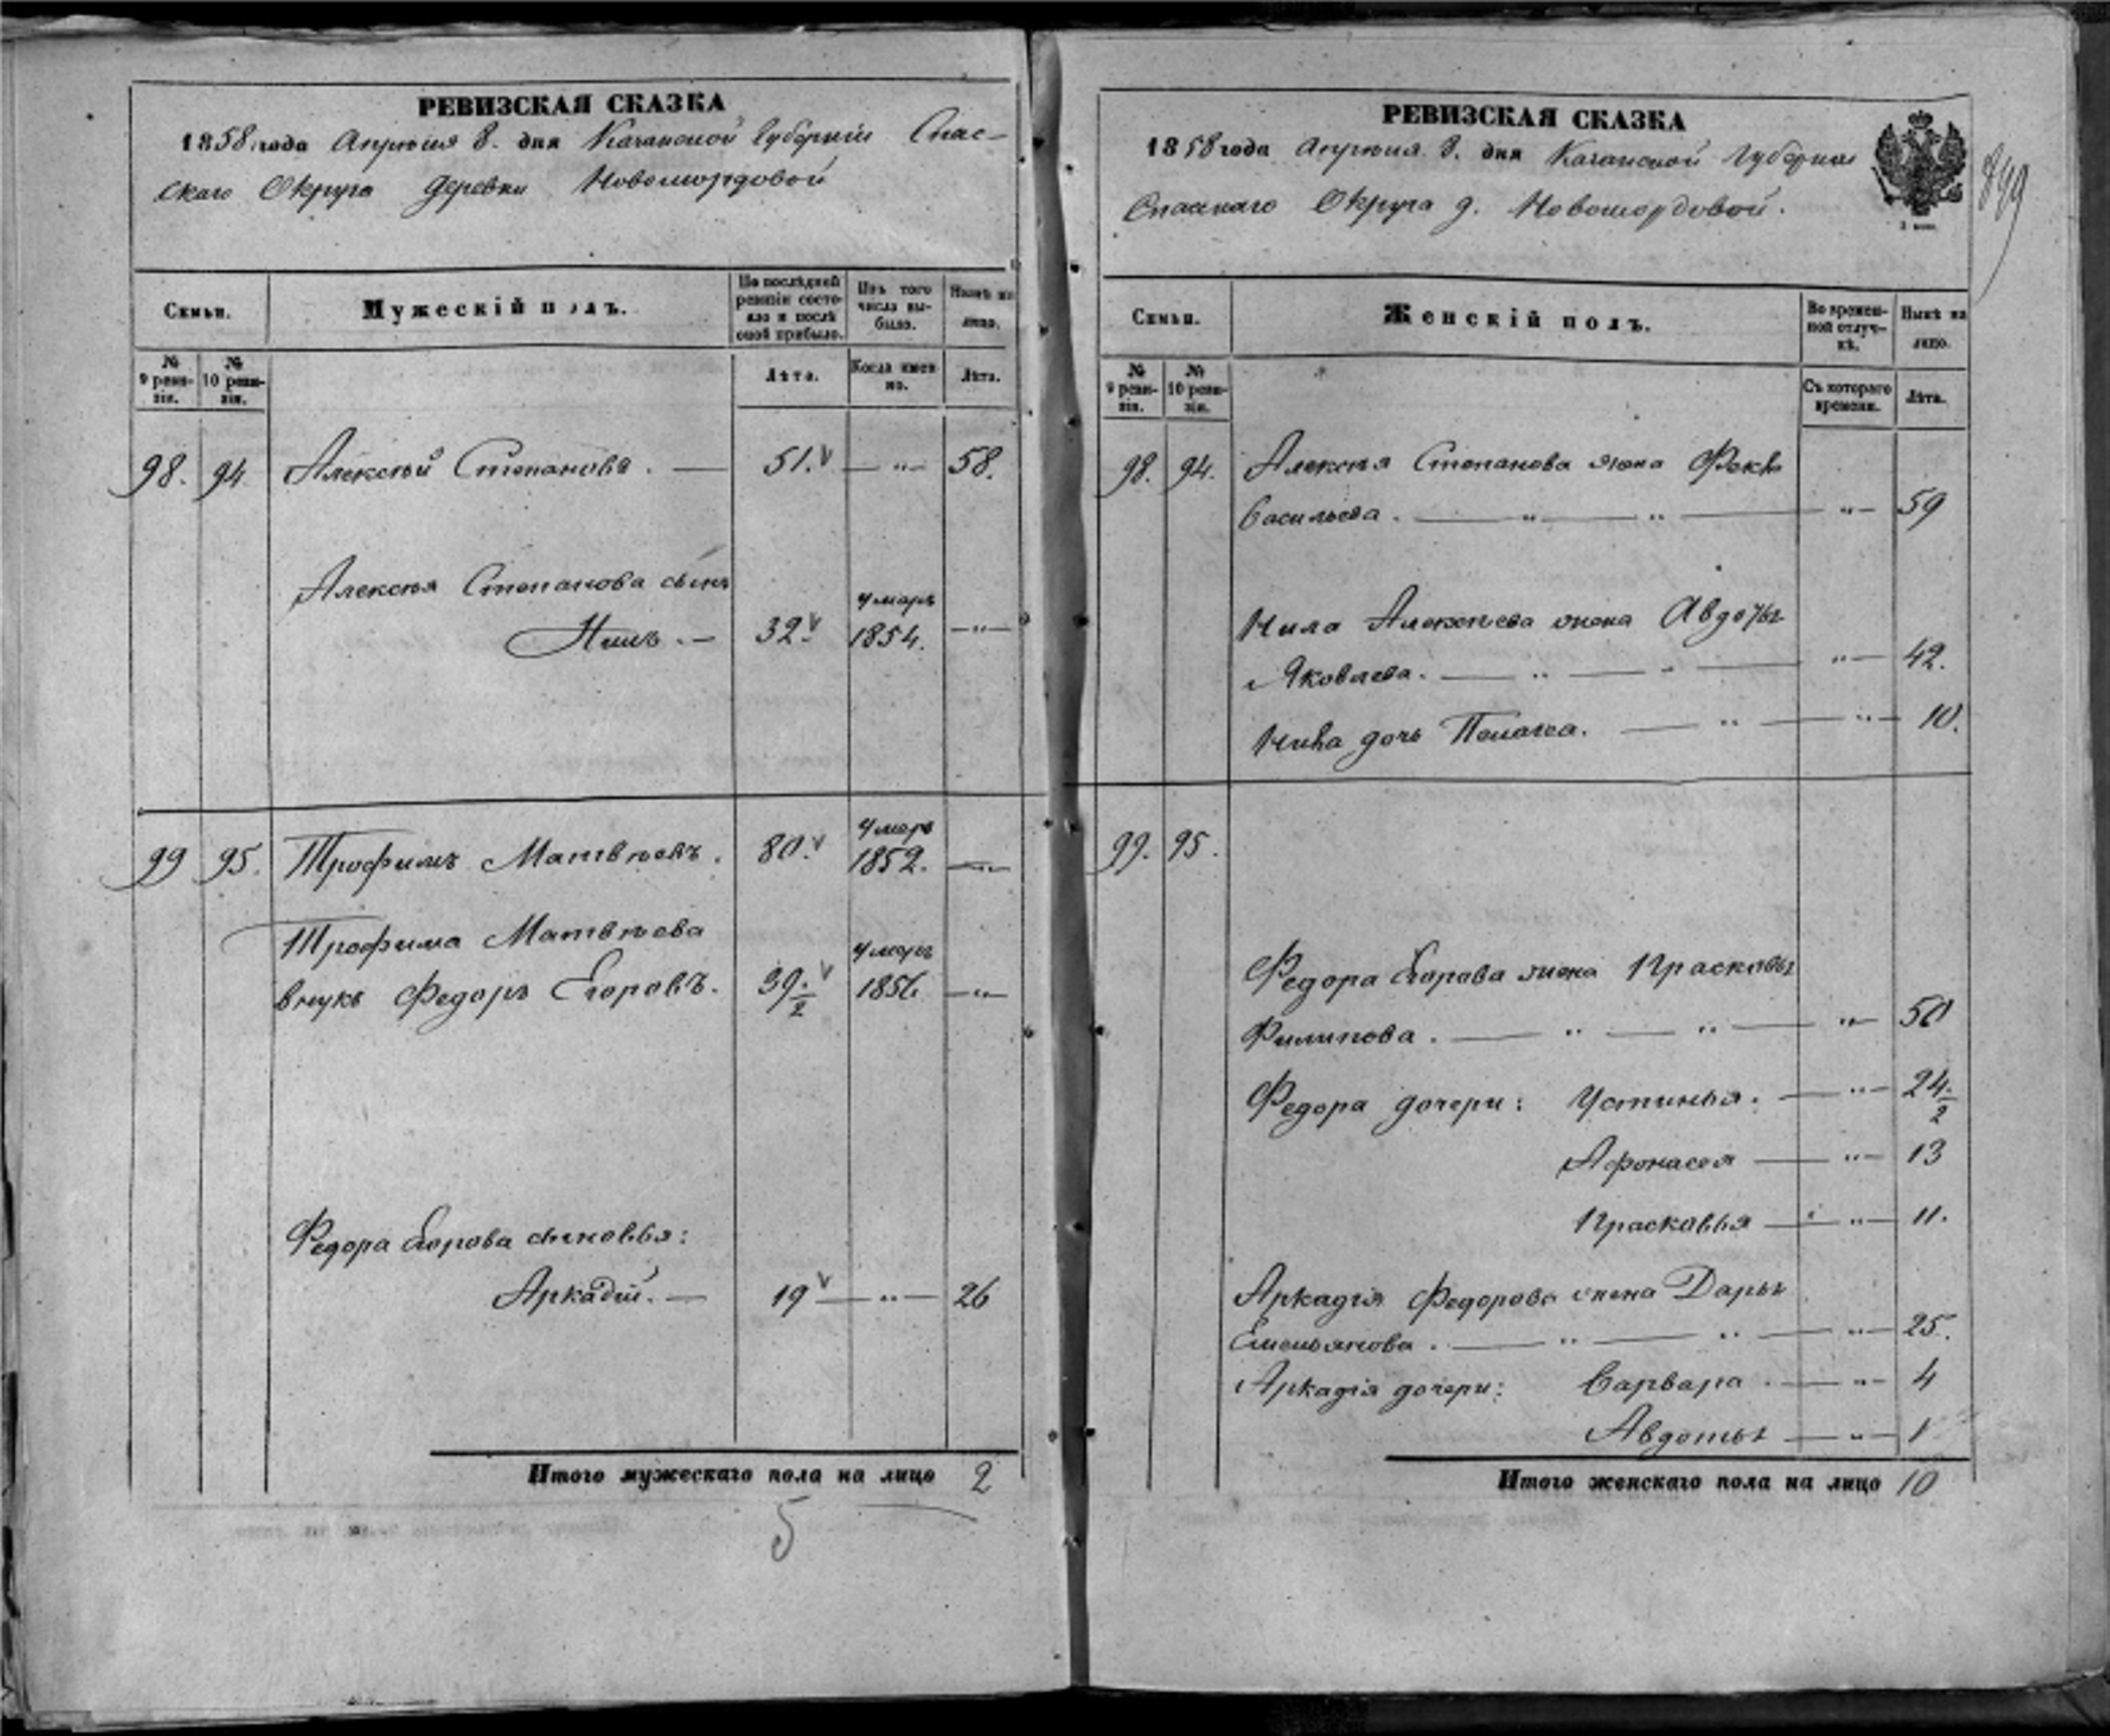 РЕВИЗСКАЯ СКАЗКА
1858 года Апрѣля 8. дня Казанской Губерніи Спас-
скаго Округа Деревни Новомордовой
Семьи.
Мужескій полъ.
По послѣдней ревизіи состояло и послѣ оной прибыло.
Изъ того числа выбыло.
Нынѣ на лицо.
№ 9 ревизіи.
№ 10 ревизіи.
Лѣта.
Когда именно.
Лѣта.
98. 94 Алексѣй Степановъ. — 51. — " — 58.
Алексѣя Степанова сынъ
Нилъ. — 32. умеръ 1854. — " —
99 95. Трофимъ Матвѣевъ. 80. умеръ 1852. — " —
Трофима Матвѣева
внукъ Федоръ Егоровъ. 39 1/2 умеръ 1856 — " —
Федора Егорова сыновья:
Аркадій. — 19 — " — 26
Итого мужескаго пола на лицо 2
5
РЕВИЗСКАЯ СКАЗКА
1858 года Апрѣля 8. дня Казанской Губерніи
Спасскаго Округа д. Новомордовой.
3 коп.
849
Семьи.
Женскій полъ.
Во временной отлучкѣ.
Нынѣ на лицо.
№ 9 ревизіи.
№ 10 ревизіи.
Съ котораго времени.
Лѣта.
98. 94. Алексѣя Степанова жена Фекла
Васильева. — " — " — " — 59
Нила Алексѣева жена Авдотья
Яковлева. — " — " — " — 42.
Нила дочь Пелагея. — " — " — 10.
99. 95.
Федора Егорова жена Прасковья
Филипова. — " — " — " — 50
Федора дочери: Устинья. — " — 24 1/2
Афонасея — " — 13
Прасковья — " — 11.
Аркадія Федорова жена Дарья
Емельянова. — " — " — " — 25.
Аркадія дочери: Варвара. — " — 4
Авдотья — " — 1
Итого женскаго пола на лицо 10